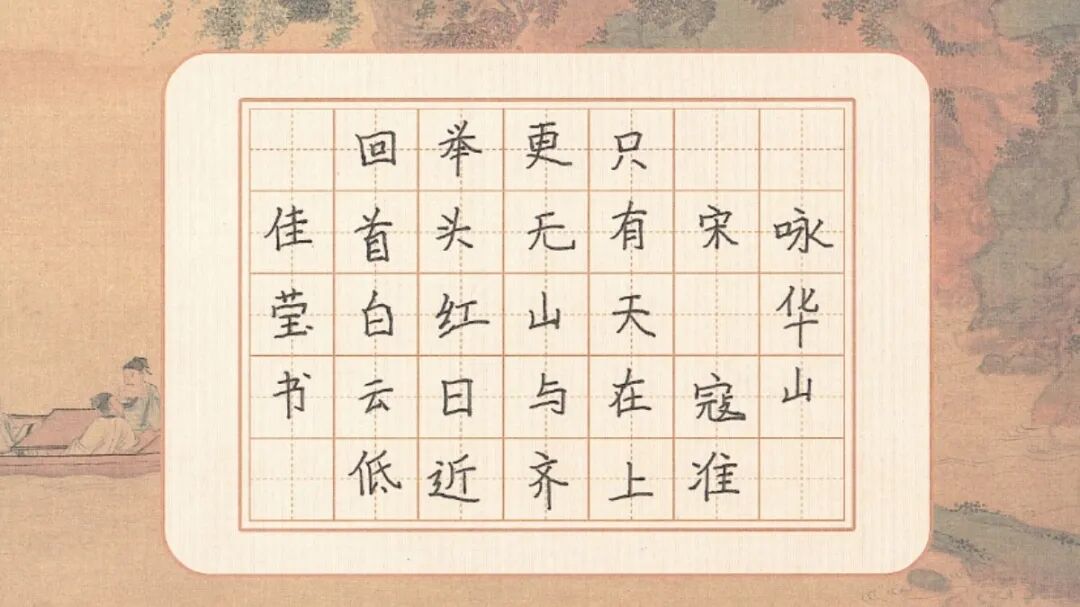 咏华山
宋 寇准
只有天在上
更无山与齐
举头红日近
回首白云低
佳莹书